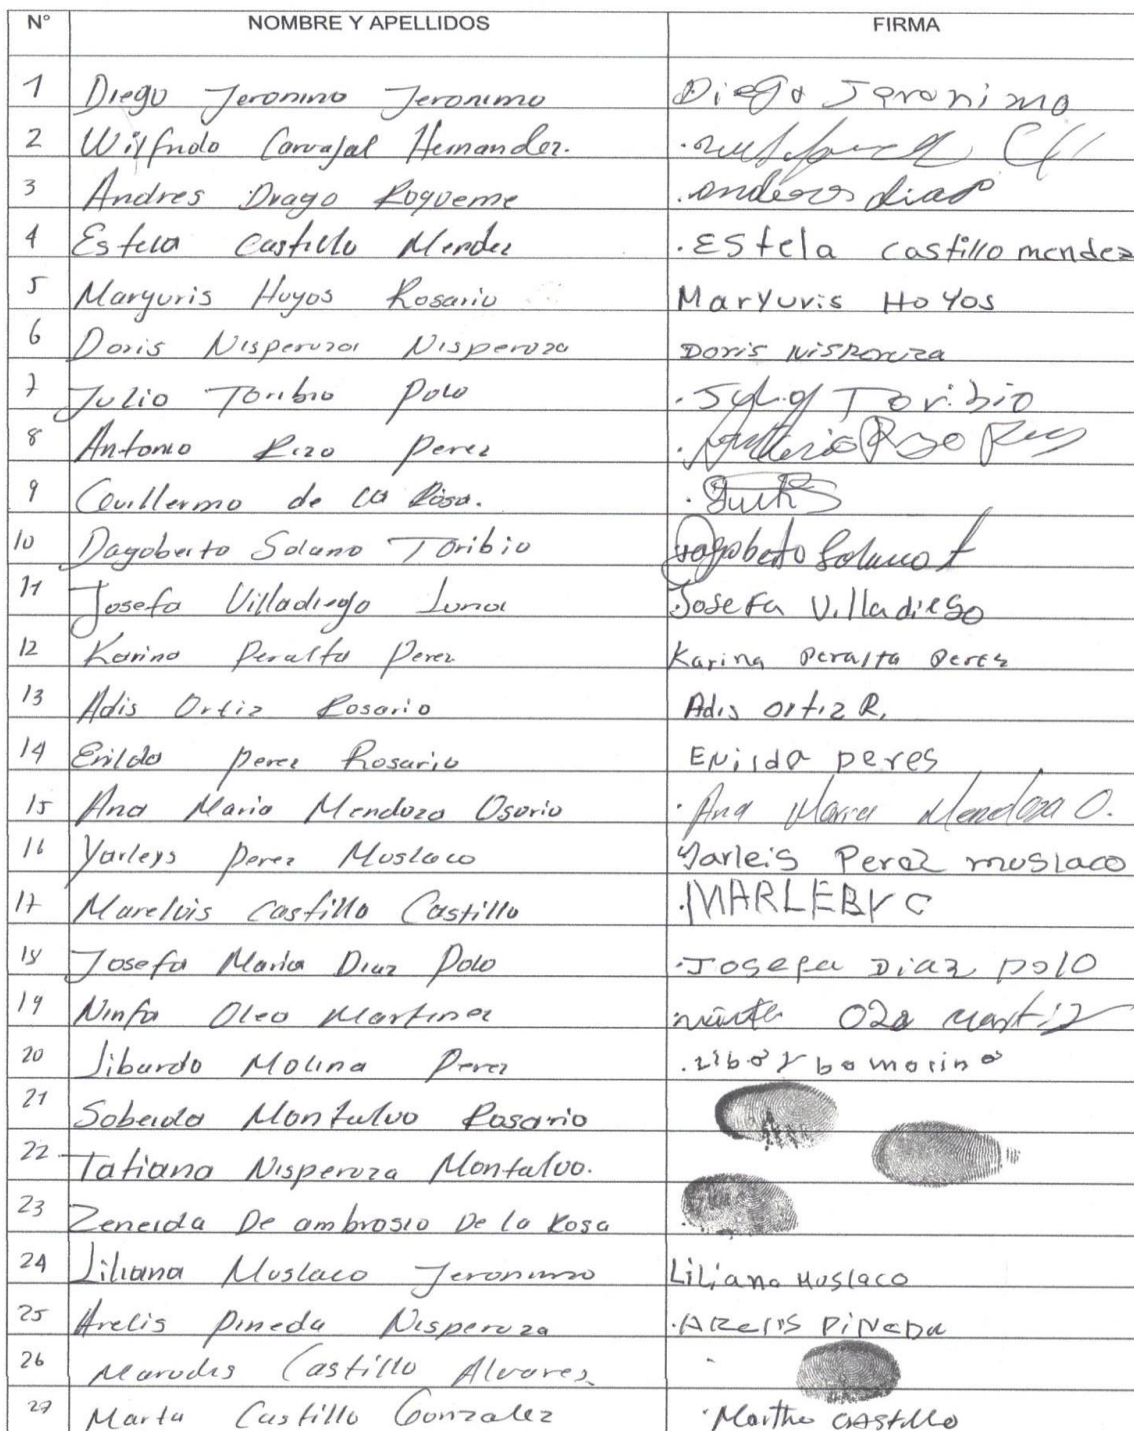 N° NOMBRE Y APELLIDOS FIRMA
1 Diego Jeronimo Jeronimo Diego Jeronimo
2 Wilfrido Carvajal Hernandez.
3 Andres Drago Roqueme
4 Estela Castillo Mendez .EStela castillo mendez
5 Maryuris Hoyos Rosario Maryuris Hoyos
6 Doris Nisperuza Nisperuza Doris Nisperuza
7 Julio Toribio Polo Toribio
8 Antonio Rizo Perez
9 Guillermo de la Rosa.
10 Dagoberto Solano Toribio Dagoberto Solano t
11 Josefa Villadiego Luna Josefa Villadiego
12 Karina Peralta Perez Karina Peralta Perez
13 Adis Ortiz Rosario Adis ortiz R.
14 Enilda perez Rosario ENilda peres
15 Ana Maria Mendoza Osorio .Ana Maria Mendoza O.
16 Yarleys perez Muslaco Yarleis Perez muslaco
17 Marelvis Castillo Castillo
18 Josefa Maria Diaz Polo .Josefa Diaz polo
19 Ninfa Oleo Martinez
20 Libardo Molina Perez
21 Sobeida Montalvo Rosario
22 Tatiana Nisperuza Montalvo.
23 Zeneida De ambrosio De la Rosa
24 Liliana Muslaco Jeronimo Liliana Muslaco
25 Arelis Pineda Nisperuza .ARelis PiNeDa
26 Marudis Castillo Alvares
27 Marta Castillo Gonzalez .Martha CASTillo